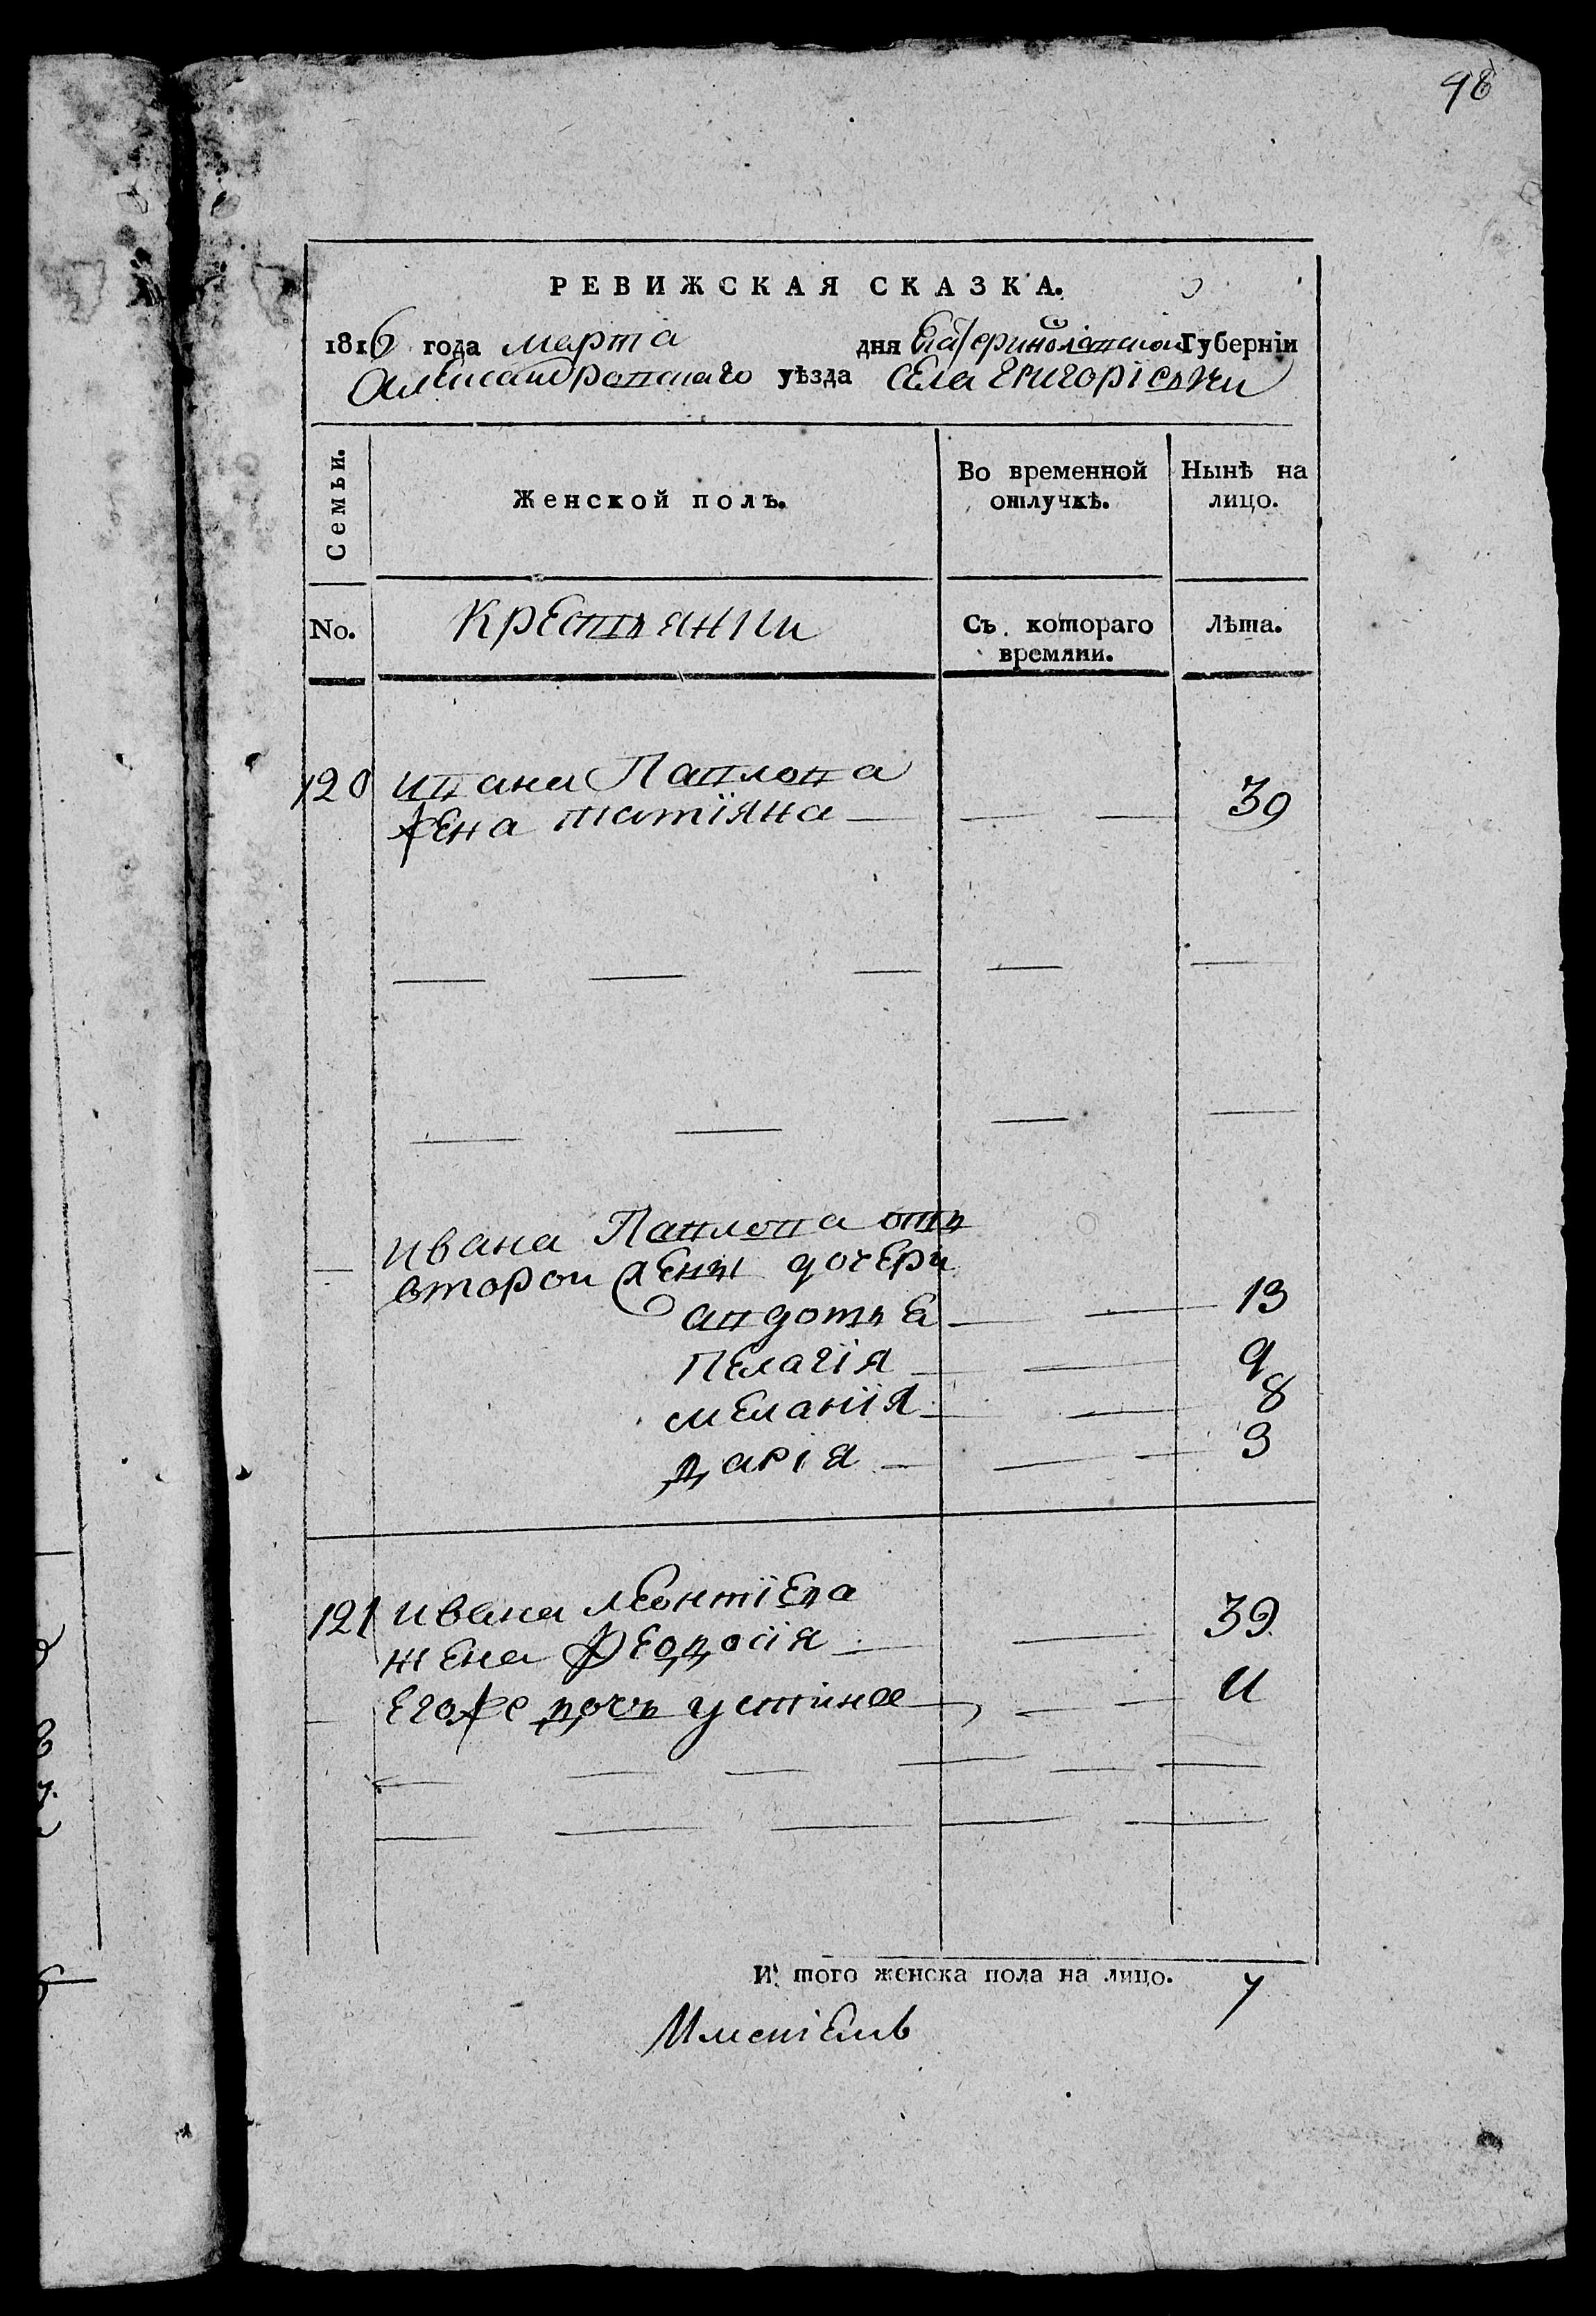 98
РЕВИЖСКАЯ СКАЗКА.
1816 года марта дня Екатеринославской Губернїи
Александровскаго уѣзда села Григорїевки
Семьи.
Женской полъ.
Во временной отлучкѣ.
Нынѣ на лицо.
No.
Крестьянки
Съ котораго времяни.
Лѣта.
120 Ивана Павлова
жена татїяна 39
Ивана Павлова отъ
второй жены дочери
авдотьа 13
Пелагїя 9
меланїя 8
дарїя 3
121 Ивана Леонтїева
жена Феодосїя 39
Егоже дочь устинья 11
И того женска пола на лицо. 7